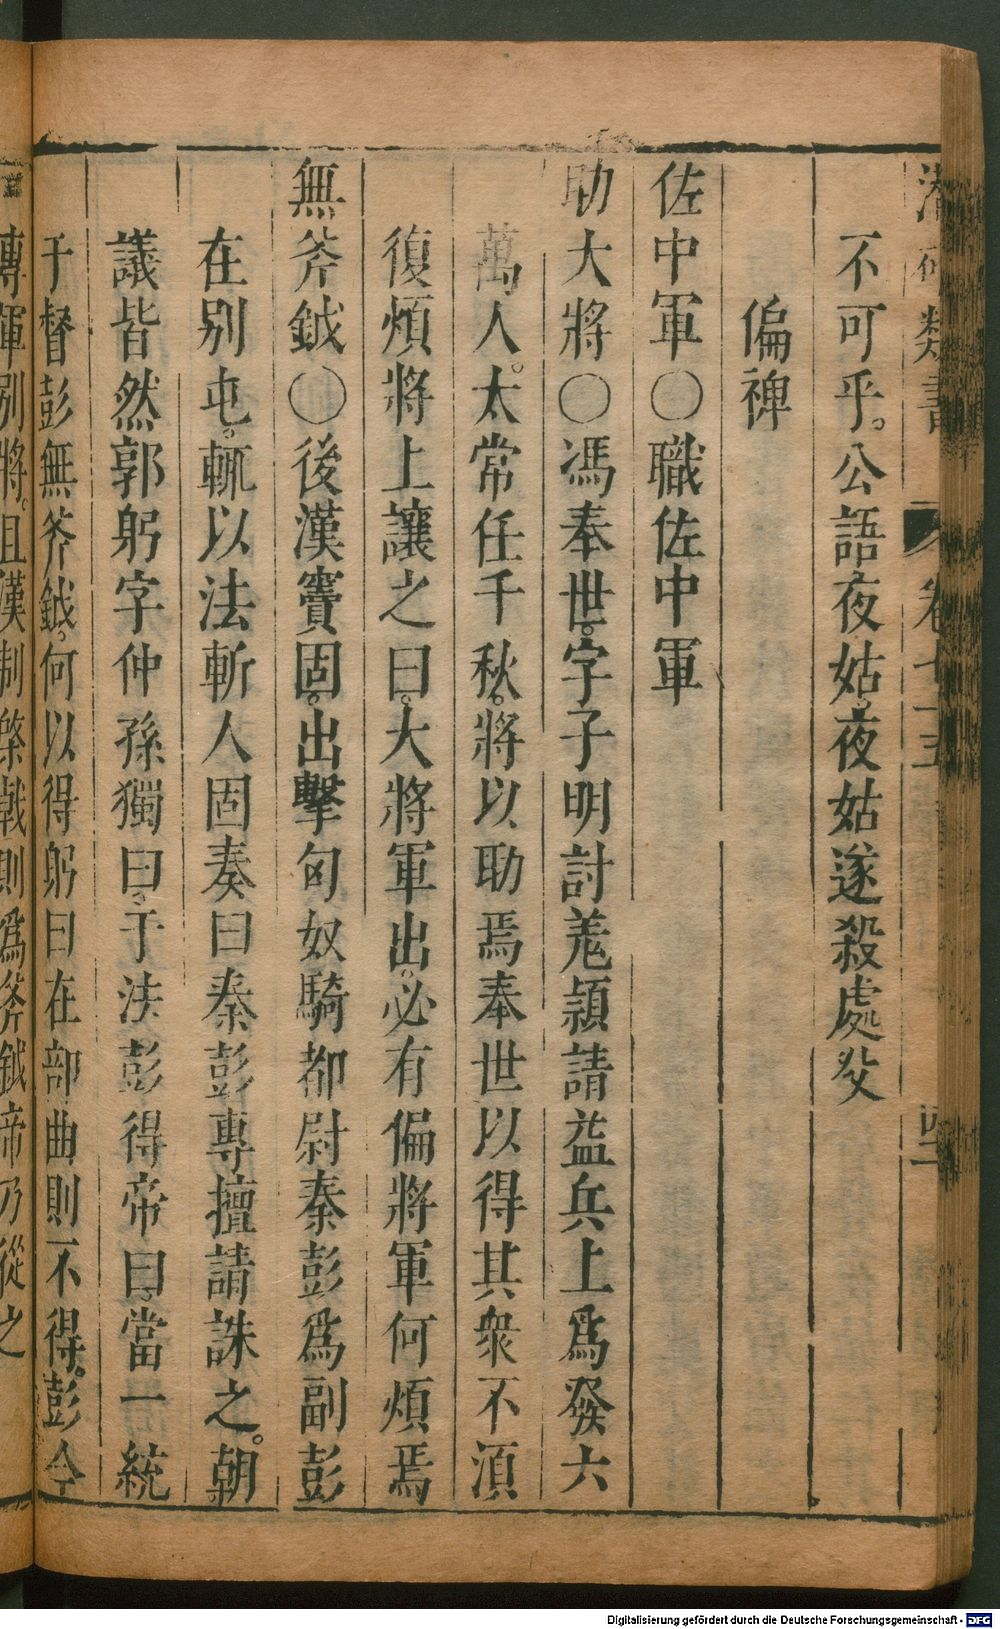 潛確類書 卷七十五 四十一
不可乎。公語夜姑。夜姑遂殺處父
偏裨
佐中軍○職佐中軍
助大將○馮奉世。字子明討羗頴請益兵上爲發六
萬人。太常任千秋。將以助焉奉世以得其衆不湏
復煩將上讓之曰。大將軍出。必有偏將軍何煩焉
無斧鉞○後漢竇固。出擊匈奴騎都尉秦彭爲副彭
在别屯。輒以法斬人固奏曰秦彭專擅請誅之。朝
議皆然郭躬字仲孫獨曰。于法彭得帝曰。當一統
于督彭無斧鉞。何以得躬曰在部曲則不得。彭今
專軍别將。且漢制棨戟則爲斧鉞帝乃從之
Digitalisierung gefördert durch die Deutsche Forschungsgemeinschaft - DFG